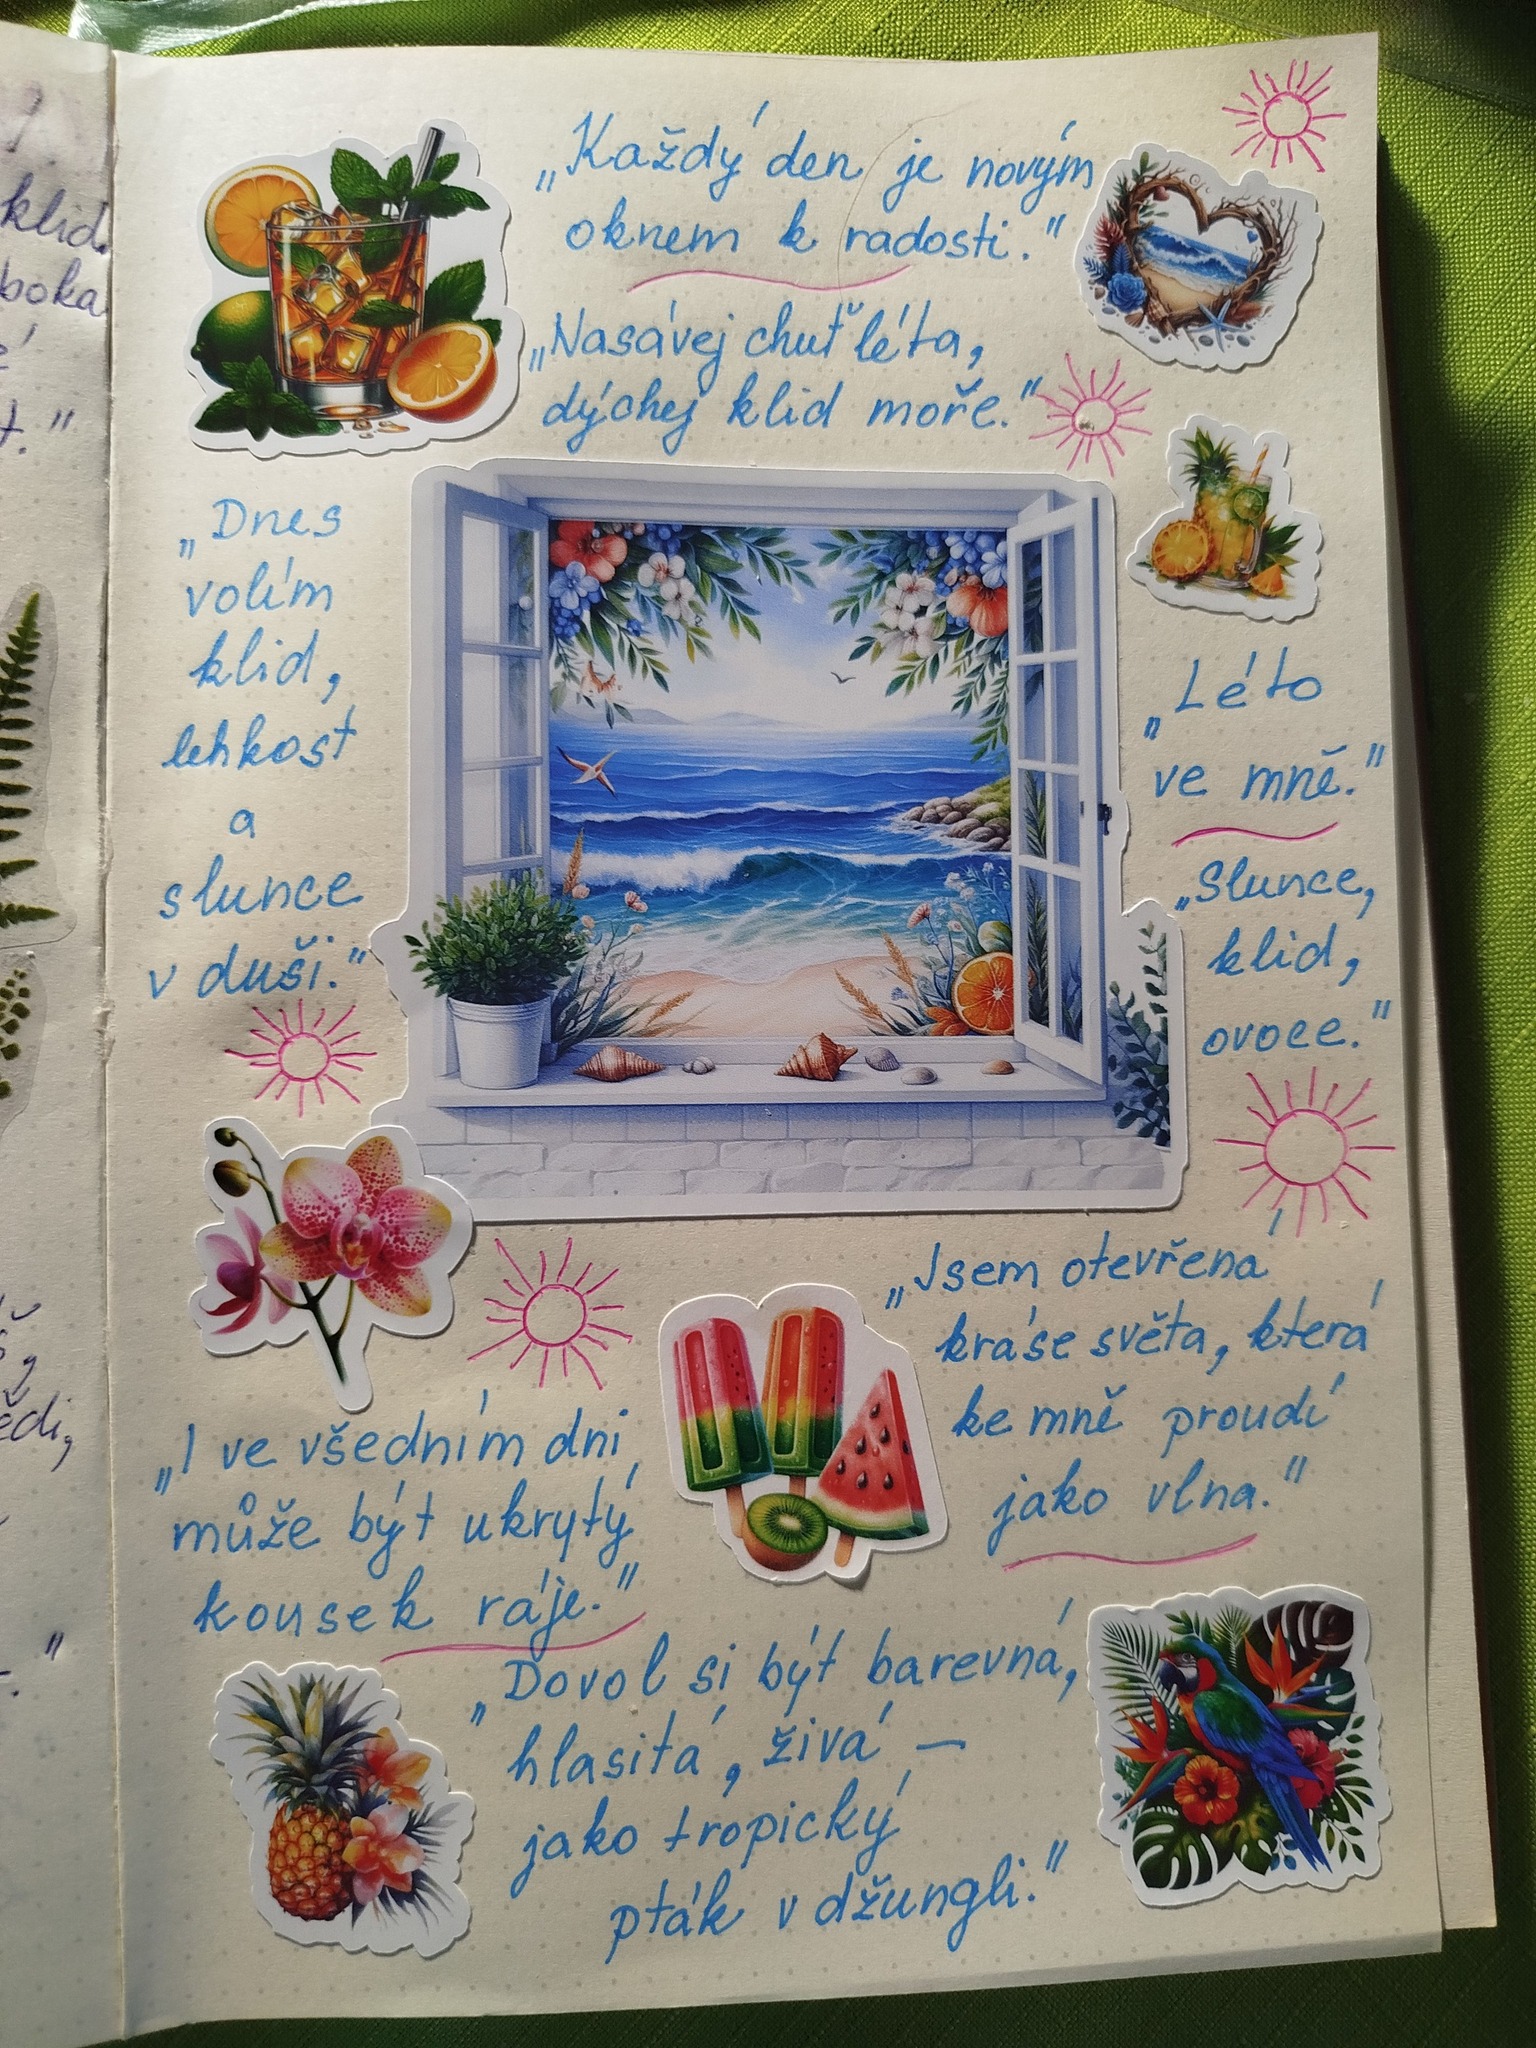 „Každý den je novým
oknem k radosti."
„Nasávej chuť léta,
dýchej klid moře."
„Dnes
volím
klid,
lehkost
a
slunce
v duši."
„Léto
ve mně."
„Slunce,
klid,
ovoce."
„Jsem otevřená
kráse světa, která
ke mně proudí
jako vlna."
„I ve všedním dni
může být ukrytý
kousek ráje."
„Dovol si být barevná,
hlasitá, živá —
jako tropický
pták v džungli."
klid.
boka